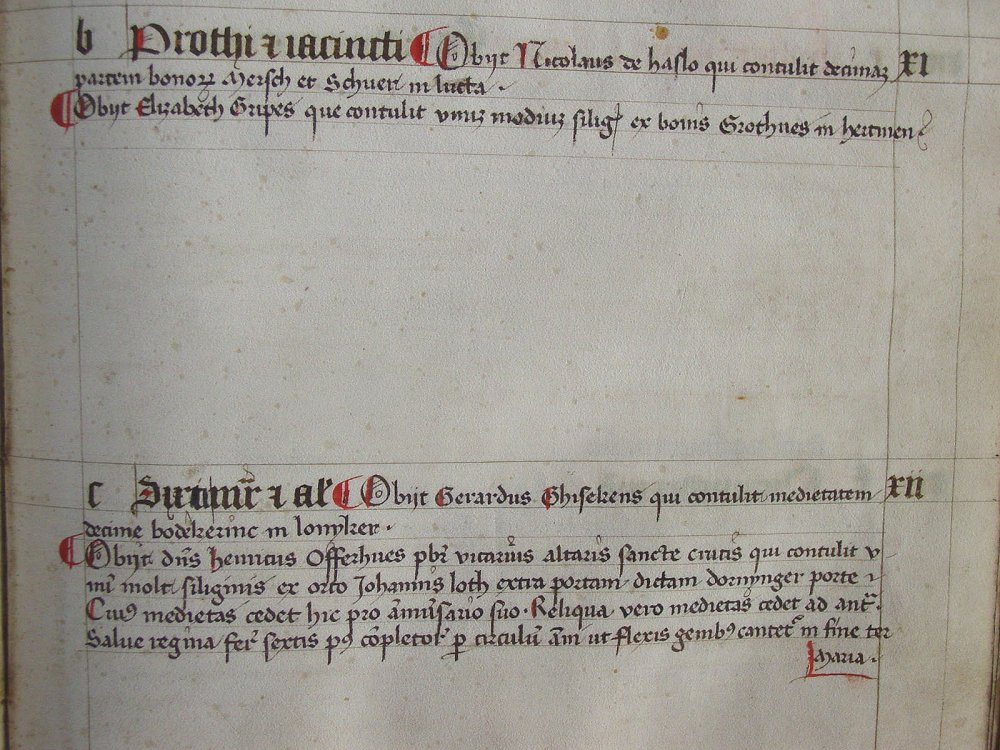 b Prothi ⁊ iacincti Obijt Nicolaus de haslo qui contulit decimaꝫ XI
partem bonoꝝ Mersch et Schuert in lutta ·
Obijt Elizabeth Gripes que contulit vnuꝫ modiuꝫ silig̃ ex bonis Grothues in hertmen
c Obijt Gerardus Ghisekens qui contulit medietatem xii
decime bodekerinc in lonyker ·
Obijt dn̄s henricus Offerhues pb̄r vicariꝰ altaris sancte crucis qui contulit v
nū molt siliginis ex orto Johannis loth extra portam dictam dornynger porte ⁊
Cuiꝰ medietas cedet hic pro āniūsario suo · Reliqua vero medietas cedet ad ant̄ ·
Salue regina fer̄ sextis pꝰ cōpletor̄ ꝑ circulū āni ut flexis genibꝰ cantet᷑ in fine ter
Maria ·